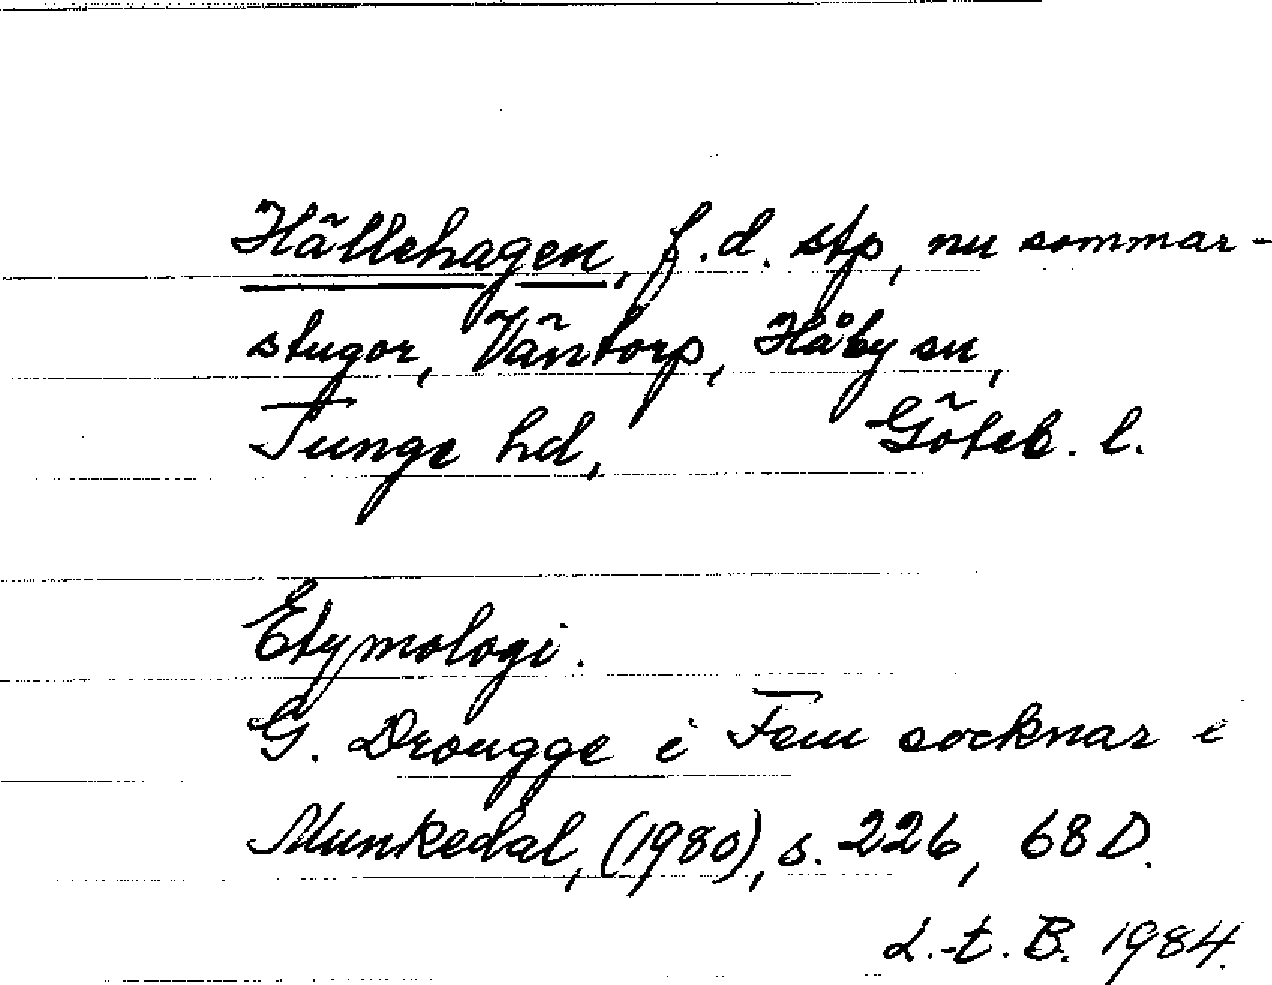 Hällehagen, f.d. stp, nu sommar-
stugor, Väntorp, Håby sn,
Tunge hd, Göteb. l.
Etymologi.
G. Drougge i Fem socknar i
Munkedal, (1980), s. 226, 68 D.
L.-t. B. 1984.